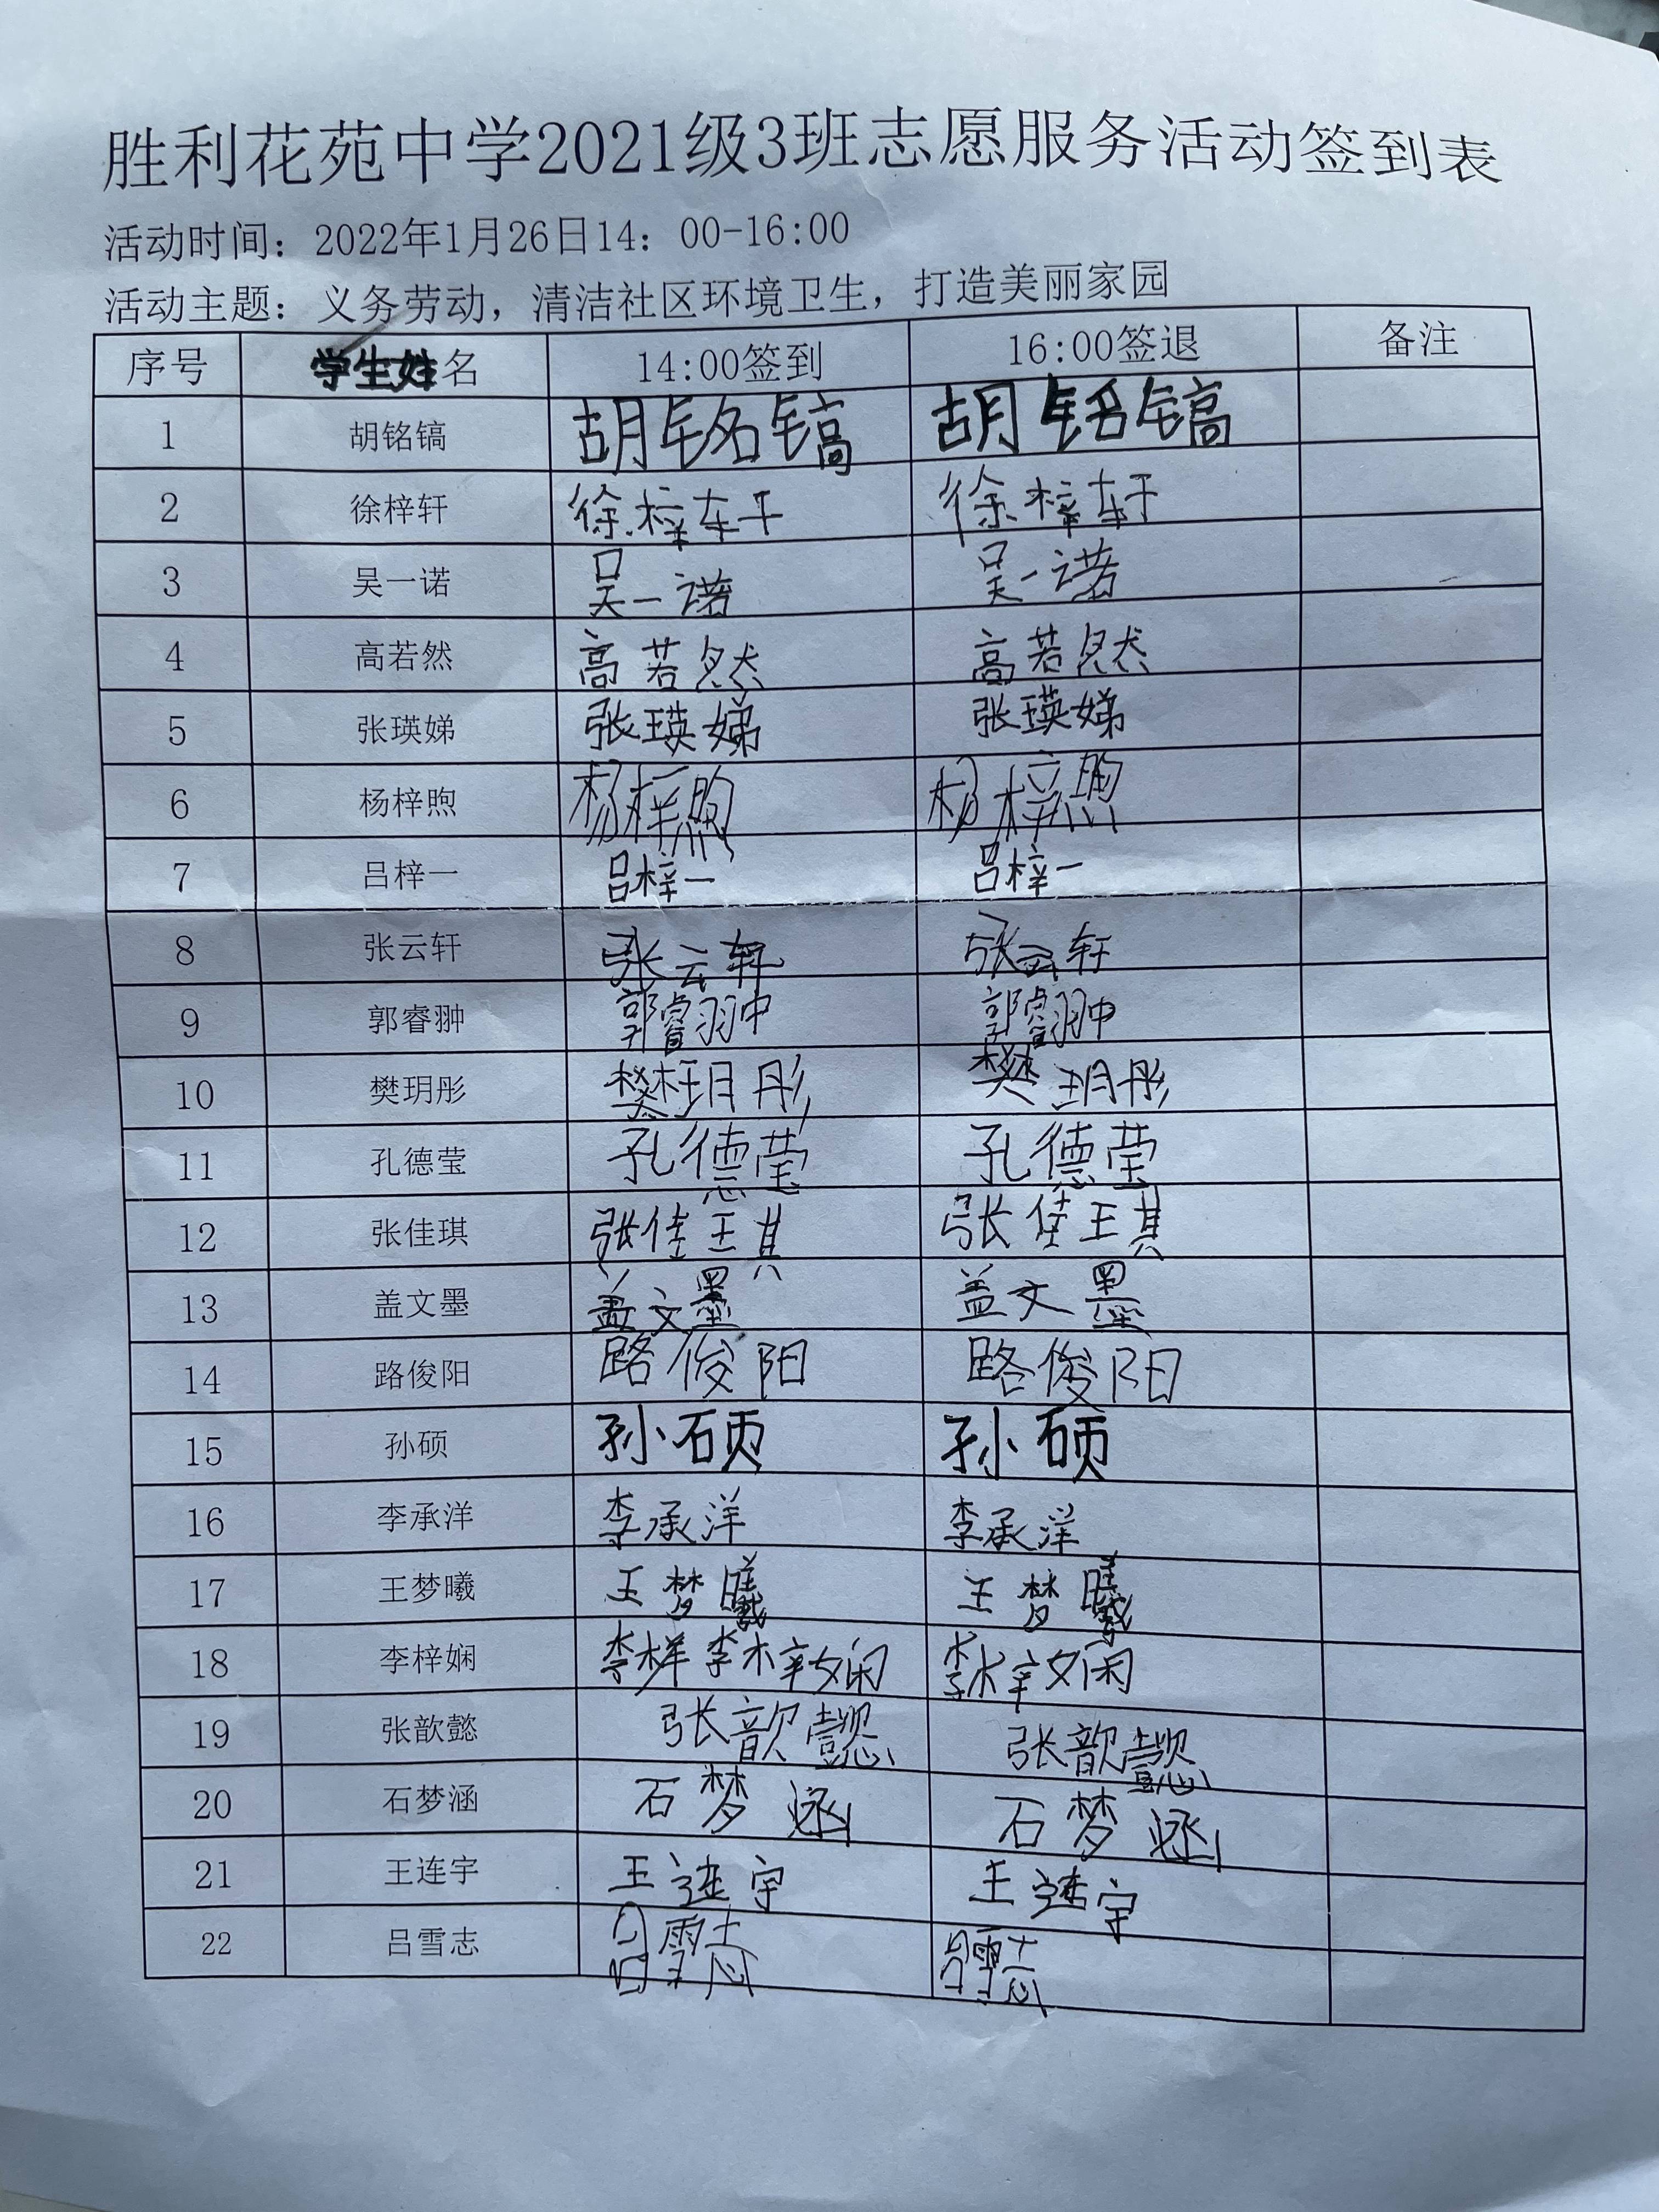 胜利花苑中学2021级3班志愿服务活动签到表
活动时间：2022年1月26日14：00-16:00
活动主题：义务劳动，清洁社区环境卫生，打造美丽家园
序号 学生姓名 14:00签到 16:00签退 备注
1 胡铭镐 胡铭镐 胡铭镐
2 徐梓轩 徐梓轩 徐梓轩
3 吴一诺 吴一诺 吴一诺
4 高若然 高若然 高若然
5 张瑛娣 张瑛娣 张瑛娣
6 杨梓煦 杨梓煦 杨梓煦
7 吕梓一 吕梓一 吕梓一
8 张云轩 张云轩 张云轩
9 郭睿翀 郭睿翀 郭睿翀
10 樊玥彤 樊玥彤 樊玥彤
11 孔德莹 孔德莹 孔德莹
12 张佳琪 张佳琪 张佳琪
13 盖文墨 盖文墨 盖文墨
14 路俊阳 路俊阳 路俊阳
15 孙硕 孙硕 孙硕
16 李承洋 李承洋 李承洋
17 王梦曦 王梦曦 王梦曦
18 李梓娴 李样 李梓娴 李梓娴
19 张歆懿 张歆懿 张歆懿
20 石梦涵 石梦涵 石梦涵
21 王连宇 王连宇 王连宇
22 吕雪志 吕雪志 吕雪志